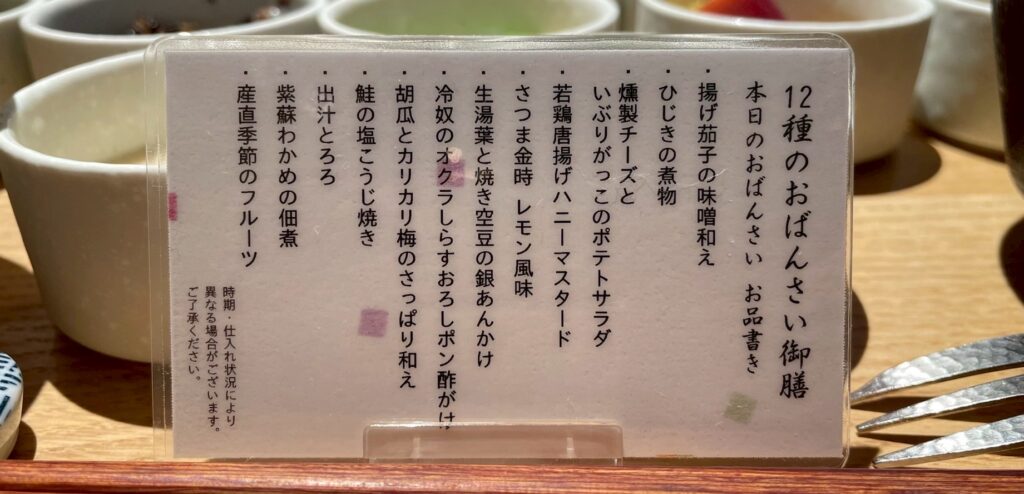 12種のおばんさい御膳
本日のおばんさい お品書き
・揚げ茄子の味噌和え
・ひじきの煮物
・燻製チーズと
いぶりがっこのポテトサラダ
・若鶏唐揚げハニーマスタード
・さつま金時 レモン風味
・生湯葉と焼き空豆の銀あんかけ
・冷奴のオクラしらすおろしポン酢がけ
・胡瓜とカリカリ梅のさっぱり和え
・鮭の塩こうじ焼き
・出汁とろろ
・紫蘇わかめの佃煮
・産直季節のフルーツ
時期・仕入れ状況により
異なる場合がございます。
ご了承ください。